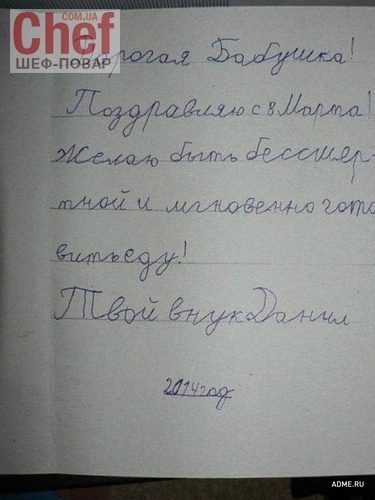 .COM.UA
Chef
ШЕФ-ПОВАР
Дорогая Бабушка!
Поздравляю с 8 Марта!
Желаю быть бессмер-
тной и мгновенно гото
вить еду!
Твой внук Данил
2014 год
ADME.RU